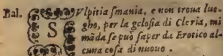 Bal. SVlpitia smania, e non troua luo-
gho, per la gelosia di Cleria, mi
mãda se può saper da Erotico al-
cuna cosa di nuouo.